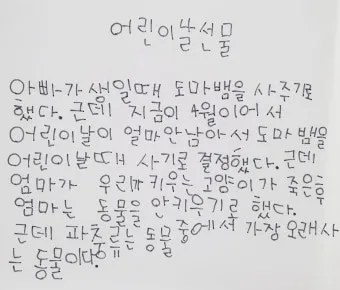 어린이날선물
아빠가 생일때 도마뱀을 사주기로
했다. 근데 지금이 4월이어서
어린이날이 얼마안남아서 도마뱀을
어린이날때 사기로 결정했다. 근데
엄마가 우리가키우는고양이가 죽은후
엄마는 동물을 안키우기로 했다.
근데 파충류는동물 중에서 가장 오래사
는 동물이다.